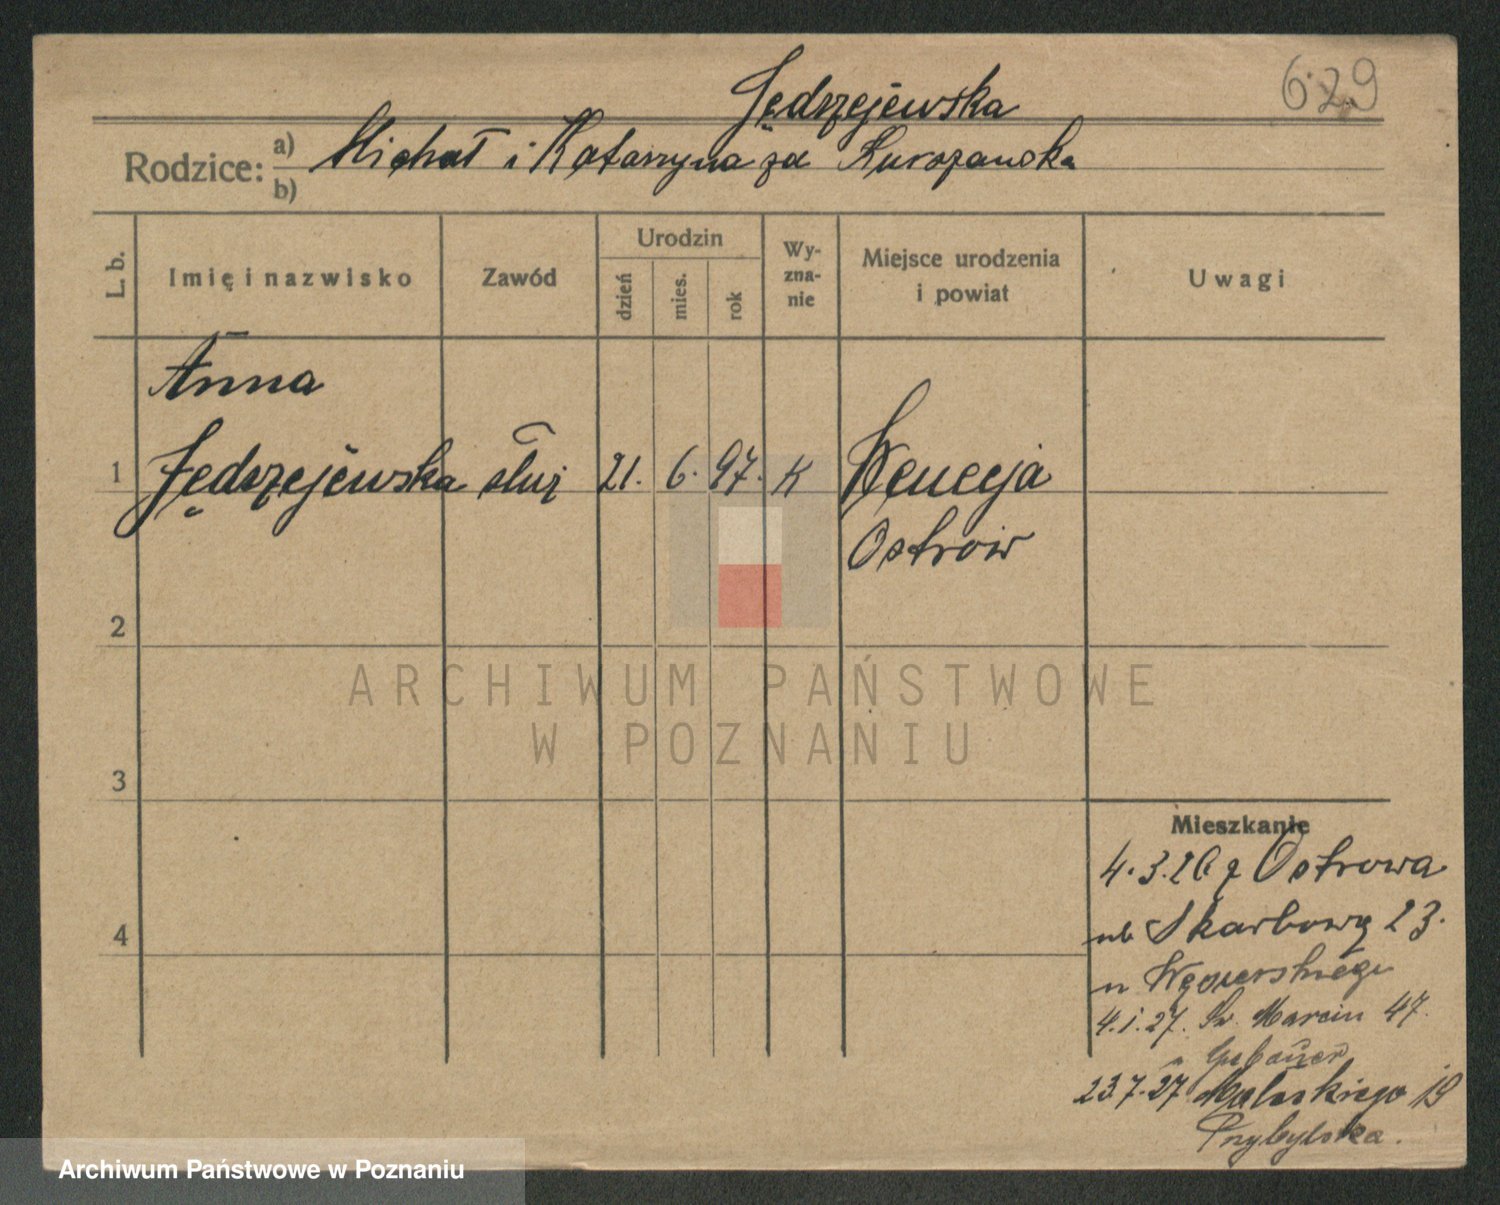 Jędrzejewska
629
Rodzice: a) Michał i Katarzyna zd
b)
L. b.
Imię i nazwisko
Zawód
Urodzin
dzień
mies.
rok
Wy-
zna-
nie
Miejsce urodzenia
i powiat
Uwagi
Anna
1 Jędrzejewska służ 21. 6. 97. K Wenecja
Ostrów
2
3
4
Mieszkanie
4.3.26 z Ostrowa
ul Skarbowa 23.
u Węsierskiego
4.1.27. Św. Marcin 47.
u Gebauer
23.7.27 19
Przybylska.
ARCHIWUM PAŃSTWOWE
W POZNANIU
Archiwum Państwowe w Poznaniu